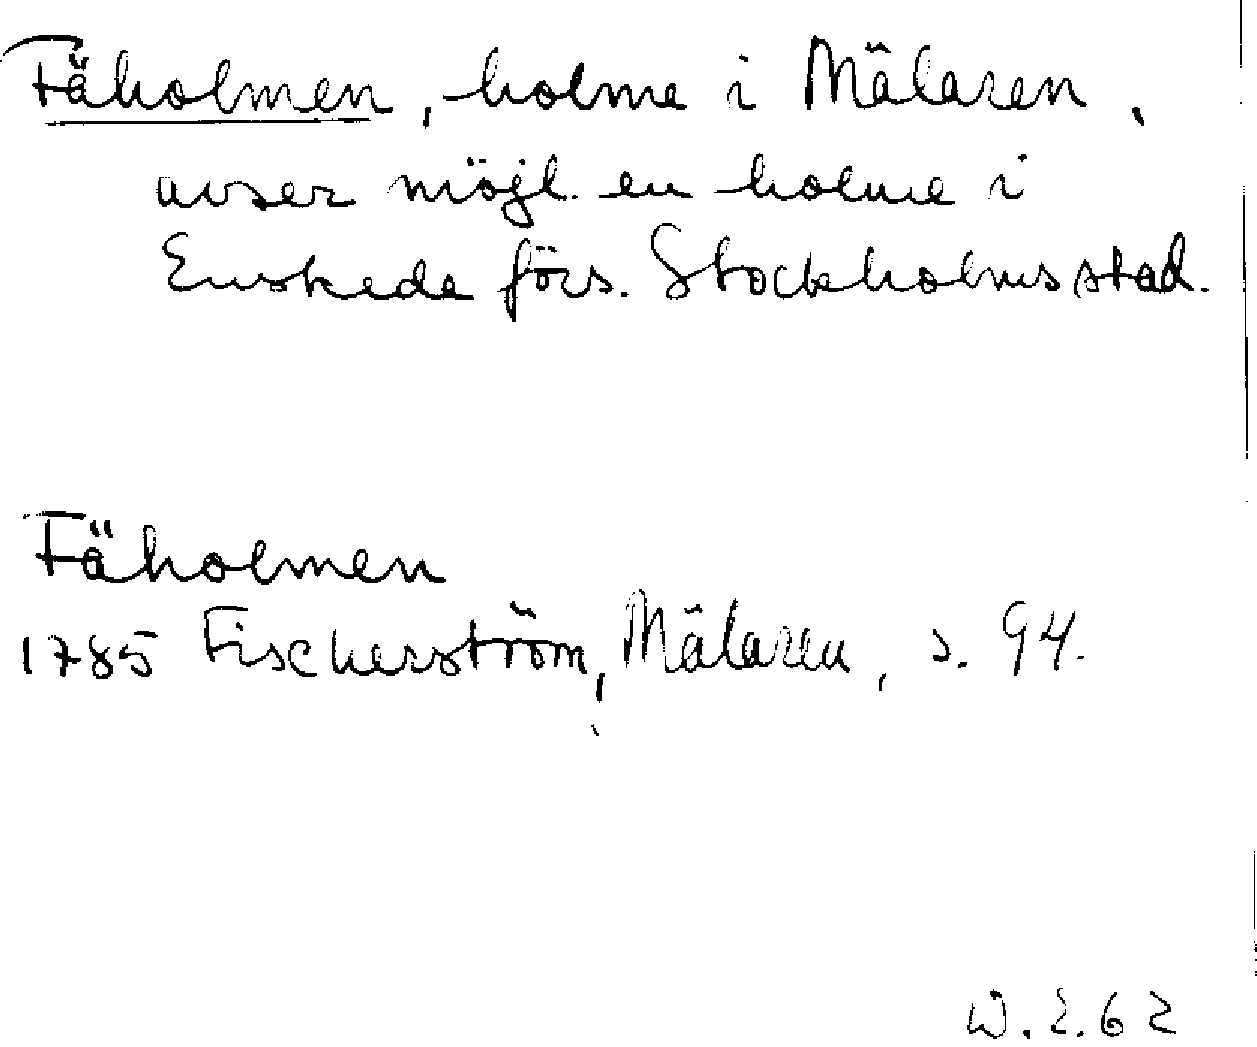 Fäholmen, holme i Mälaren,
avser möjl. en holme i
Enskede förs. Stockholms stad.
Fäholmen
1785 Fischerström, Mälaren, s. 94.
W.E.62